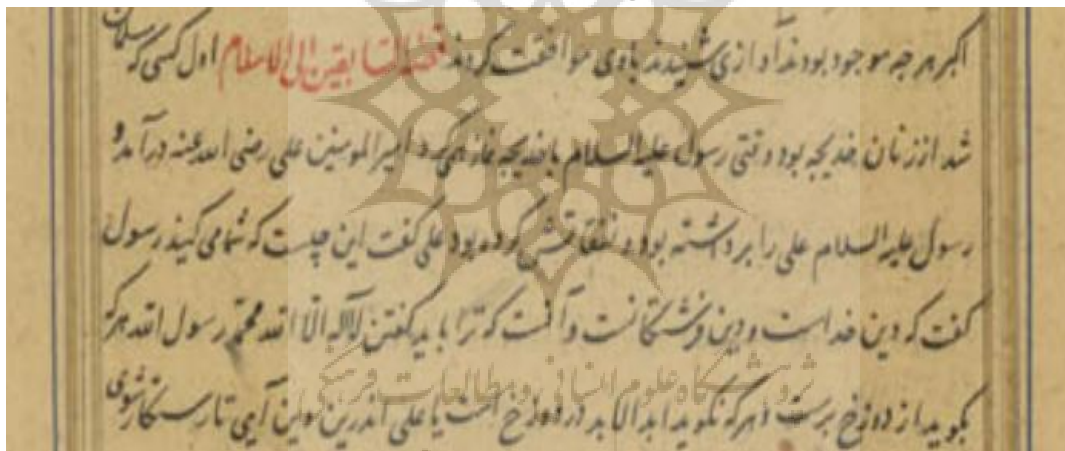 اکبر هر چه موجود بودند آوازی شنیدند با وی موافقت کردند قصة السابقین الی الاسلام اول کسی که مسلمان
شد از زنان خدیجه بود وقتی رسول علیه السلام با خدیجه نماز میکرد امیر المومنین علی رضی الله عنه در آمد و
رسول علیه السلام علی را برداشته بود و نفقاتش کرده بود علی گفت این چیست که شما می کنید رسول
گفت که دین خداست و دین فرشتگانست و آنست که ترا باید گفتن لا اله الا الله محمد رسول الله هر که
بگوید از دوزخ برست و هر که نگوید ابد الابد در دوزخ است یا علی اندرین دین آیی تا رستگار شوی
پژوهشگاه علوم انسانی و مطالعات فرهنگی